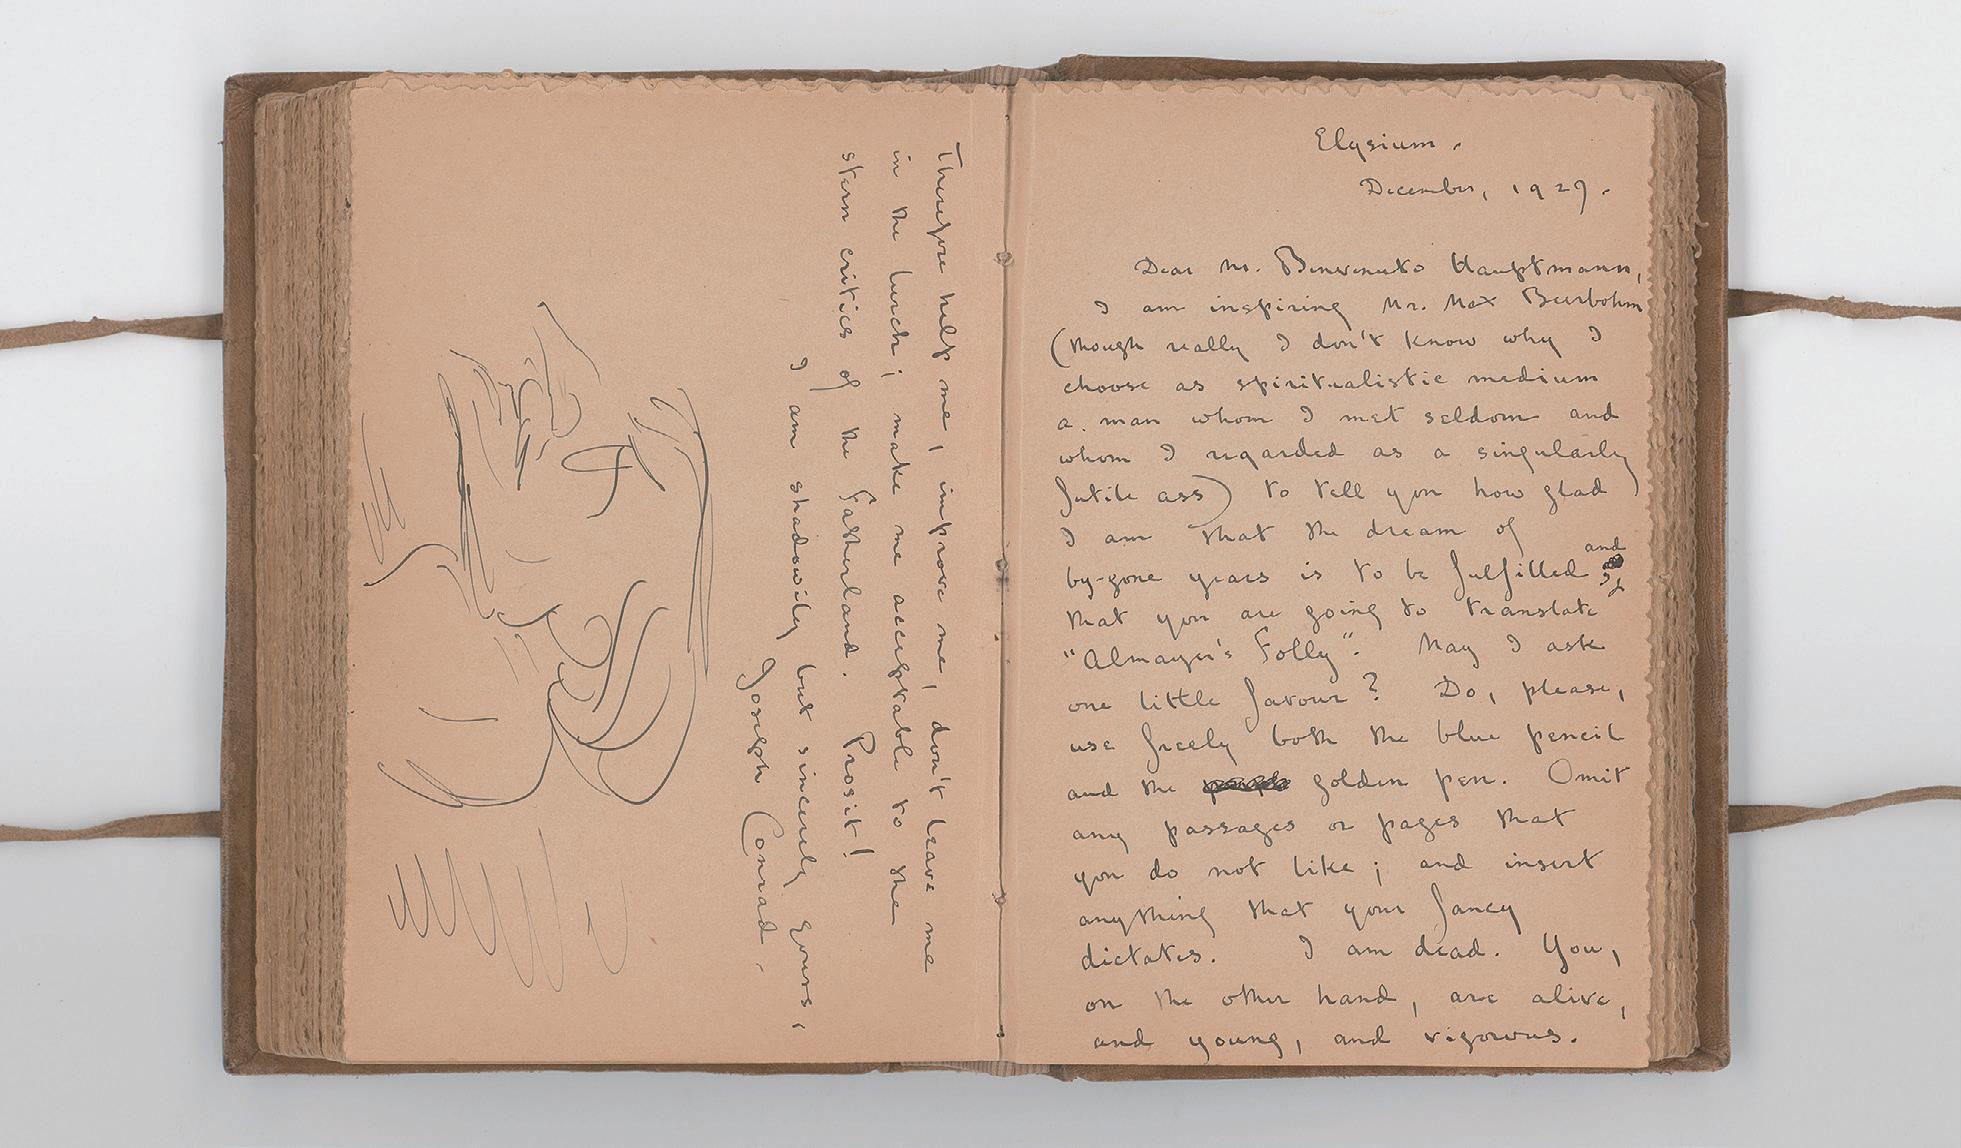 Elysium.
December, 1929.
Dear Mr. Benvenuto Hauptmann,
I am inspiring Mr. Max Beerbohm
(though really I don't know why I
choose as spiritualistic medium
a man whom I met seldom and
whom I regarded as a singularly
futile ass) to tell you how glad
I am that the dream of
by-gone years is to be fulfilled and
that you are going to translate
"Almayer's Folly". May I ask
one little favour? Do, please,
use freely both the blue pencil
and the golden pen. Omit
any passages or pages that
you do not like; and insert
anything that your fancy
dictates. I am dead. You,
on the other hand, are alive,
and young, and vigorous.
Therefore help me, improve me, don't leave me
in the lurch; make me acceptable to the
stern critics of the Fatherland. Prosit!
I am shadowily but sincerely yours,
Joseph Conrad.